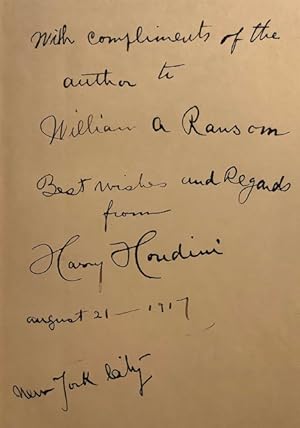 With compliments of the
author to
William A Ransom
Best wishes and Regards
from
Harry Houdini
august 21 - 1917
New York City